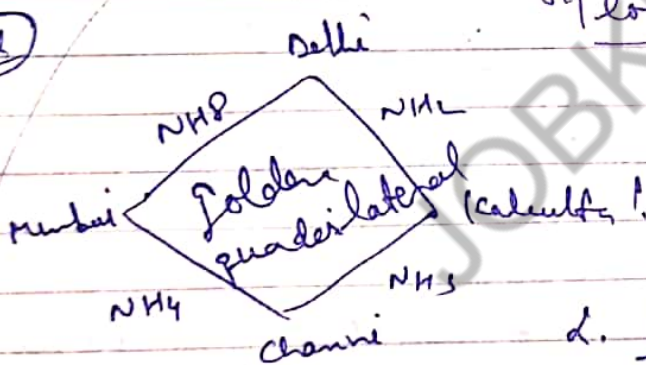 Delhi
NH8
NH2
Mumbai
Golden
quadrilateral
Kalcutta
NH4
NH5
Channi
2.
JOBK